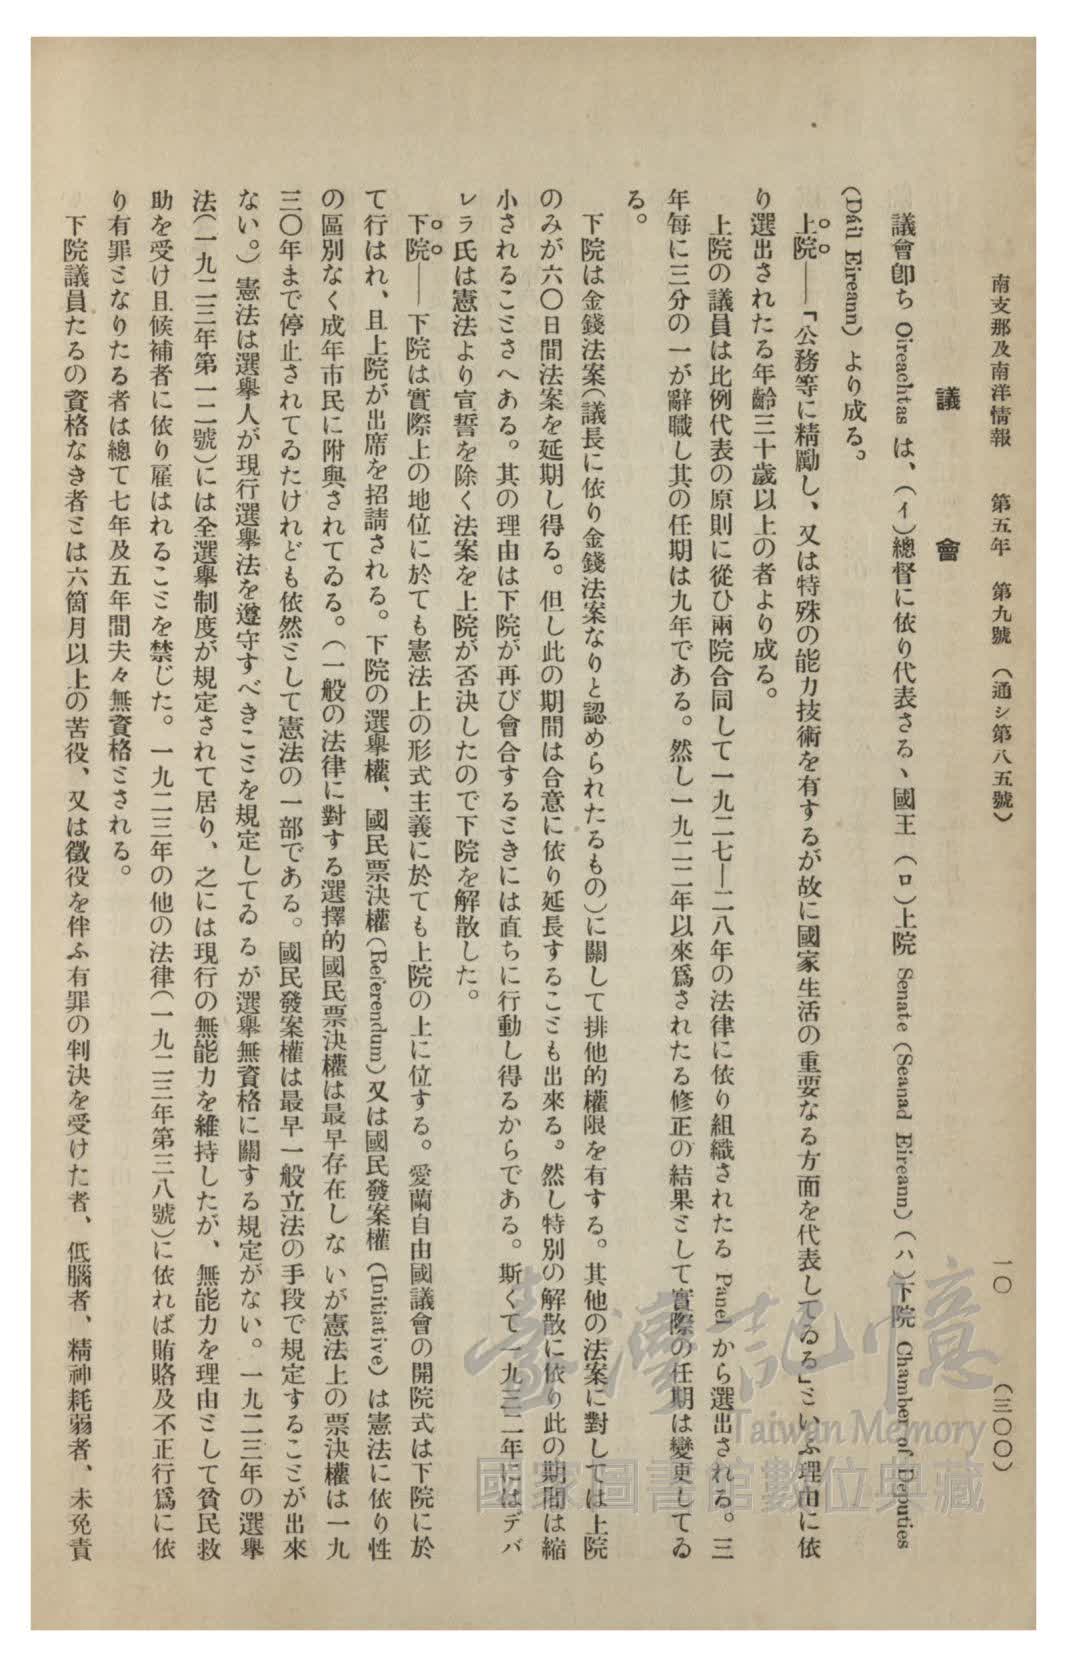 南支那及南洋情報　第五年　第九號　（通シ第八五號）　一〇　（三〇〇）
議會
議會卽ち Oireachtas は、（イ）總督に依り代表さるゝ國王（ロ）上院 Senate (Seanad Eireann)（ハ）下院 Chamber of Deputies
(Dáil Eireann) より成る。
上院——「公務等に精勵し、又は特殊の能力技術を有するが故に國家生活の重要なる方面を代表してゐる」といふ理由に依
り選出されたる年齡三十歲以上の者より成る。
上院の議員は比例代表の原則に從ひ兩院合同して一九二七—二八年の法律に依り組織されたる Panel から選出される。三
年每に三分の一が辭職し其の任期は九年である。然し一九二二年以來爲されたる修正の結果として實際の任期は變更してゐ
る。
下院は金錢法案（議長に依り金錢法案なりと認められたるもの）に關して排他的權限を有する。其他の法案に對しては上院
のみが六〇日間法案を延期し得る。但し此の期間は合意に依り延長することも出來る。然し特別の解散に依り此の期間は縮
小されることさへある。其の理由は下院が再び會合するときには直ちに行動し得るからである。斯くて一九三二年にはデバ
レラ氏は憲法より宣誓を除く法案を上院が否決したので下院を解散した。
下院——下院は實際上の地位に於ても憲法上の形式主義に於ても上院の上に位する。愛蘭自由國議會の開院式は下院に於
て行はれ、且上院が出席を招請される。下院の選擧權、國民票決權(Referendum)又は國民發案權(Initiative)は憲法に依り性
の區別なく成年市民に附與されてゐる。（一般の法律に對する選擇的國民票決權は最早存在しないが憲法上の票決權は一九
三〇年まで停止されてゐたけれども依然として憲法の一部である。國民發案權は最早一般立法の手段で規定することが出來
ない。）憲法は選擧人が現行選擧法を遵守すべきことを規定してゐるが選擧無資格に關する規定がない。一九二三年の選擧
法（一九二三年第一二號）には全選擧制度が規定されて居り、之には現行の無能力を維持したが、無能力を理由として貧民救
助を受け且候補者に依り雇はれることを禁じた。一九二三年の他の法律（一九二三年第三八號）に依れば賄賂及不正行爲に依
り有罪となりたる者は總て七年及五年間夫々無資格とされる。
下院議員たるの資格なき者とは六箇月以上の苦役、又は徵役を伴ふ有罪の判決を受けた者、低腦者、精神耗弱者、未免責
臺灣記憶
Taiwan Memory
國家圖書館數位典藏